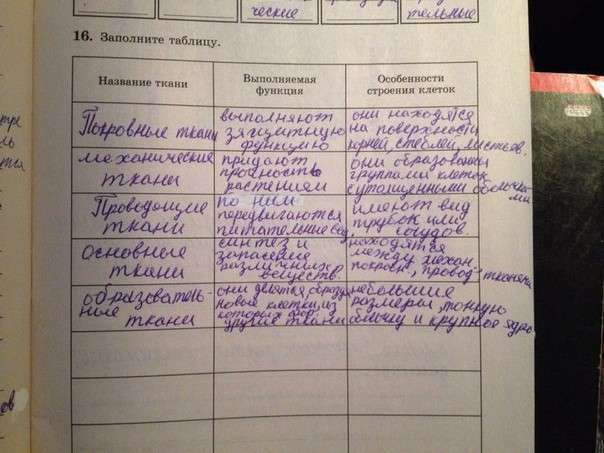 ческие
тельные
16. Заполните таблицу.
Название ткани
Выполняемая
функция
Особенности
строения клеток
Покровные ткани
выполняют
защитную
функцию
они находятся
на поверхности
корней, стеблей, листьев.
механические
ткани
придают
прочность
растениям
они образованы
группами клеток
с утолщенными оболочка
ми
Проводящие
ткани
по ним
передвигаются
питательные вещ.
имеют вид
трубок или
сосудов.
Основные
ткани
синтез и
запасание
различных
веществ.
находятся
между механ.
покровн, провод-тканями
образователь-
ные
ткани
они делятся, образуя
новые клетки, из
которых фор.
другие ткани
небольшие
размеры, тонкую
оболочку и крупное ядро